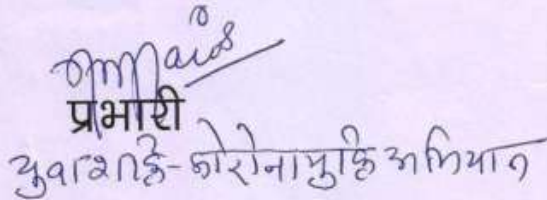 प्रभारी
युवाशक्ति-कोरोना मुक्ति अभियान